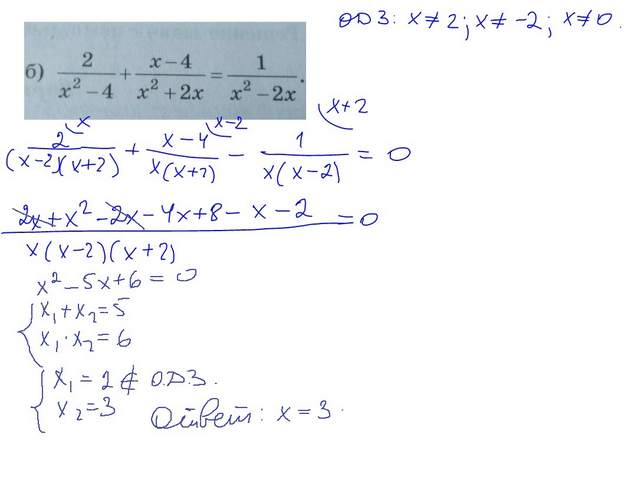 О.Д.З: x ≠ 2; x ≠ -2; x ≠ 0.
б) 2/(x² - 4) + (x - 4)/(x² + 2x) = 1/(x² - 2x).
2^(x)/((x-2)(x+2)) + (x-4)^(x-2)/(x(x+2)) - 1^(x+2)/(x(x-2)) = 0
(2x + x² - 2x - 4x + 8 - x - 2)/(x(x-2)(x+2)) = 0
x² - 5x + 6 = 0
{ x₁ + x₂ = 5
x₁ · x₂ = 6
{ x₁ = 2 ∉ О.Д.З.
x₂ = 3 Ответ: x = 3.